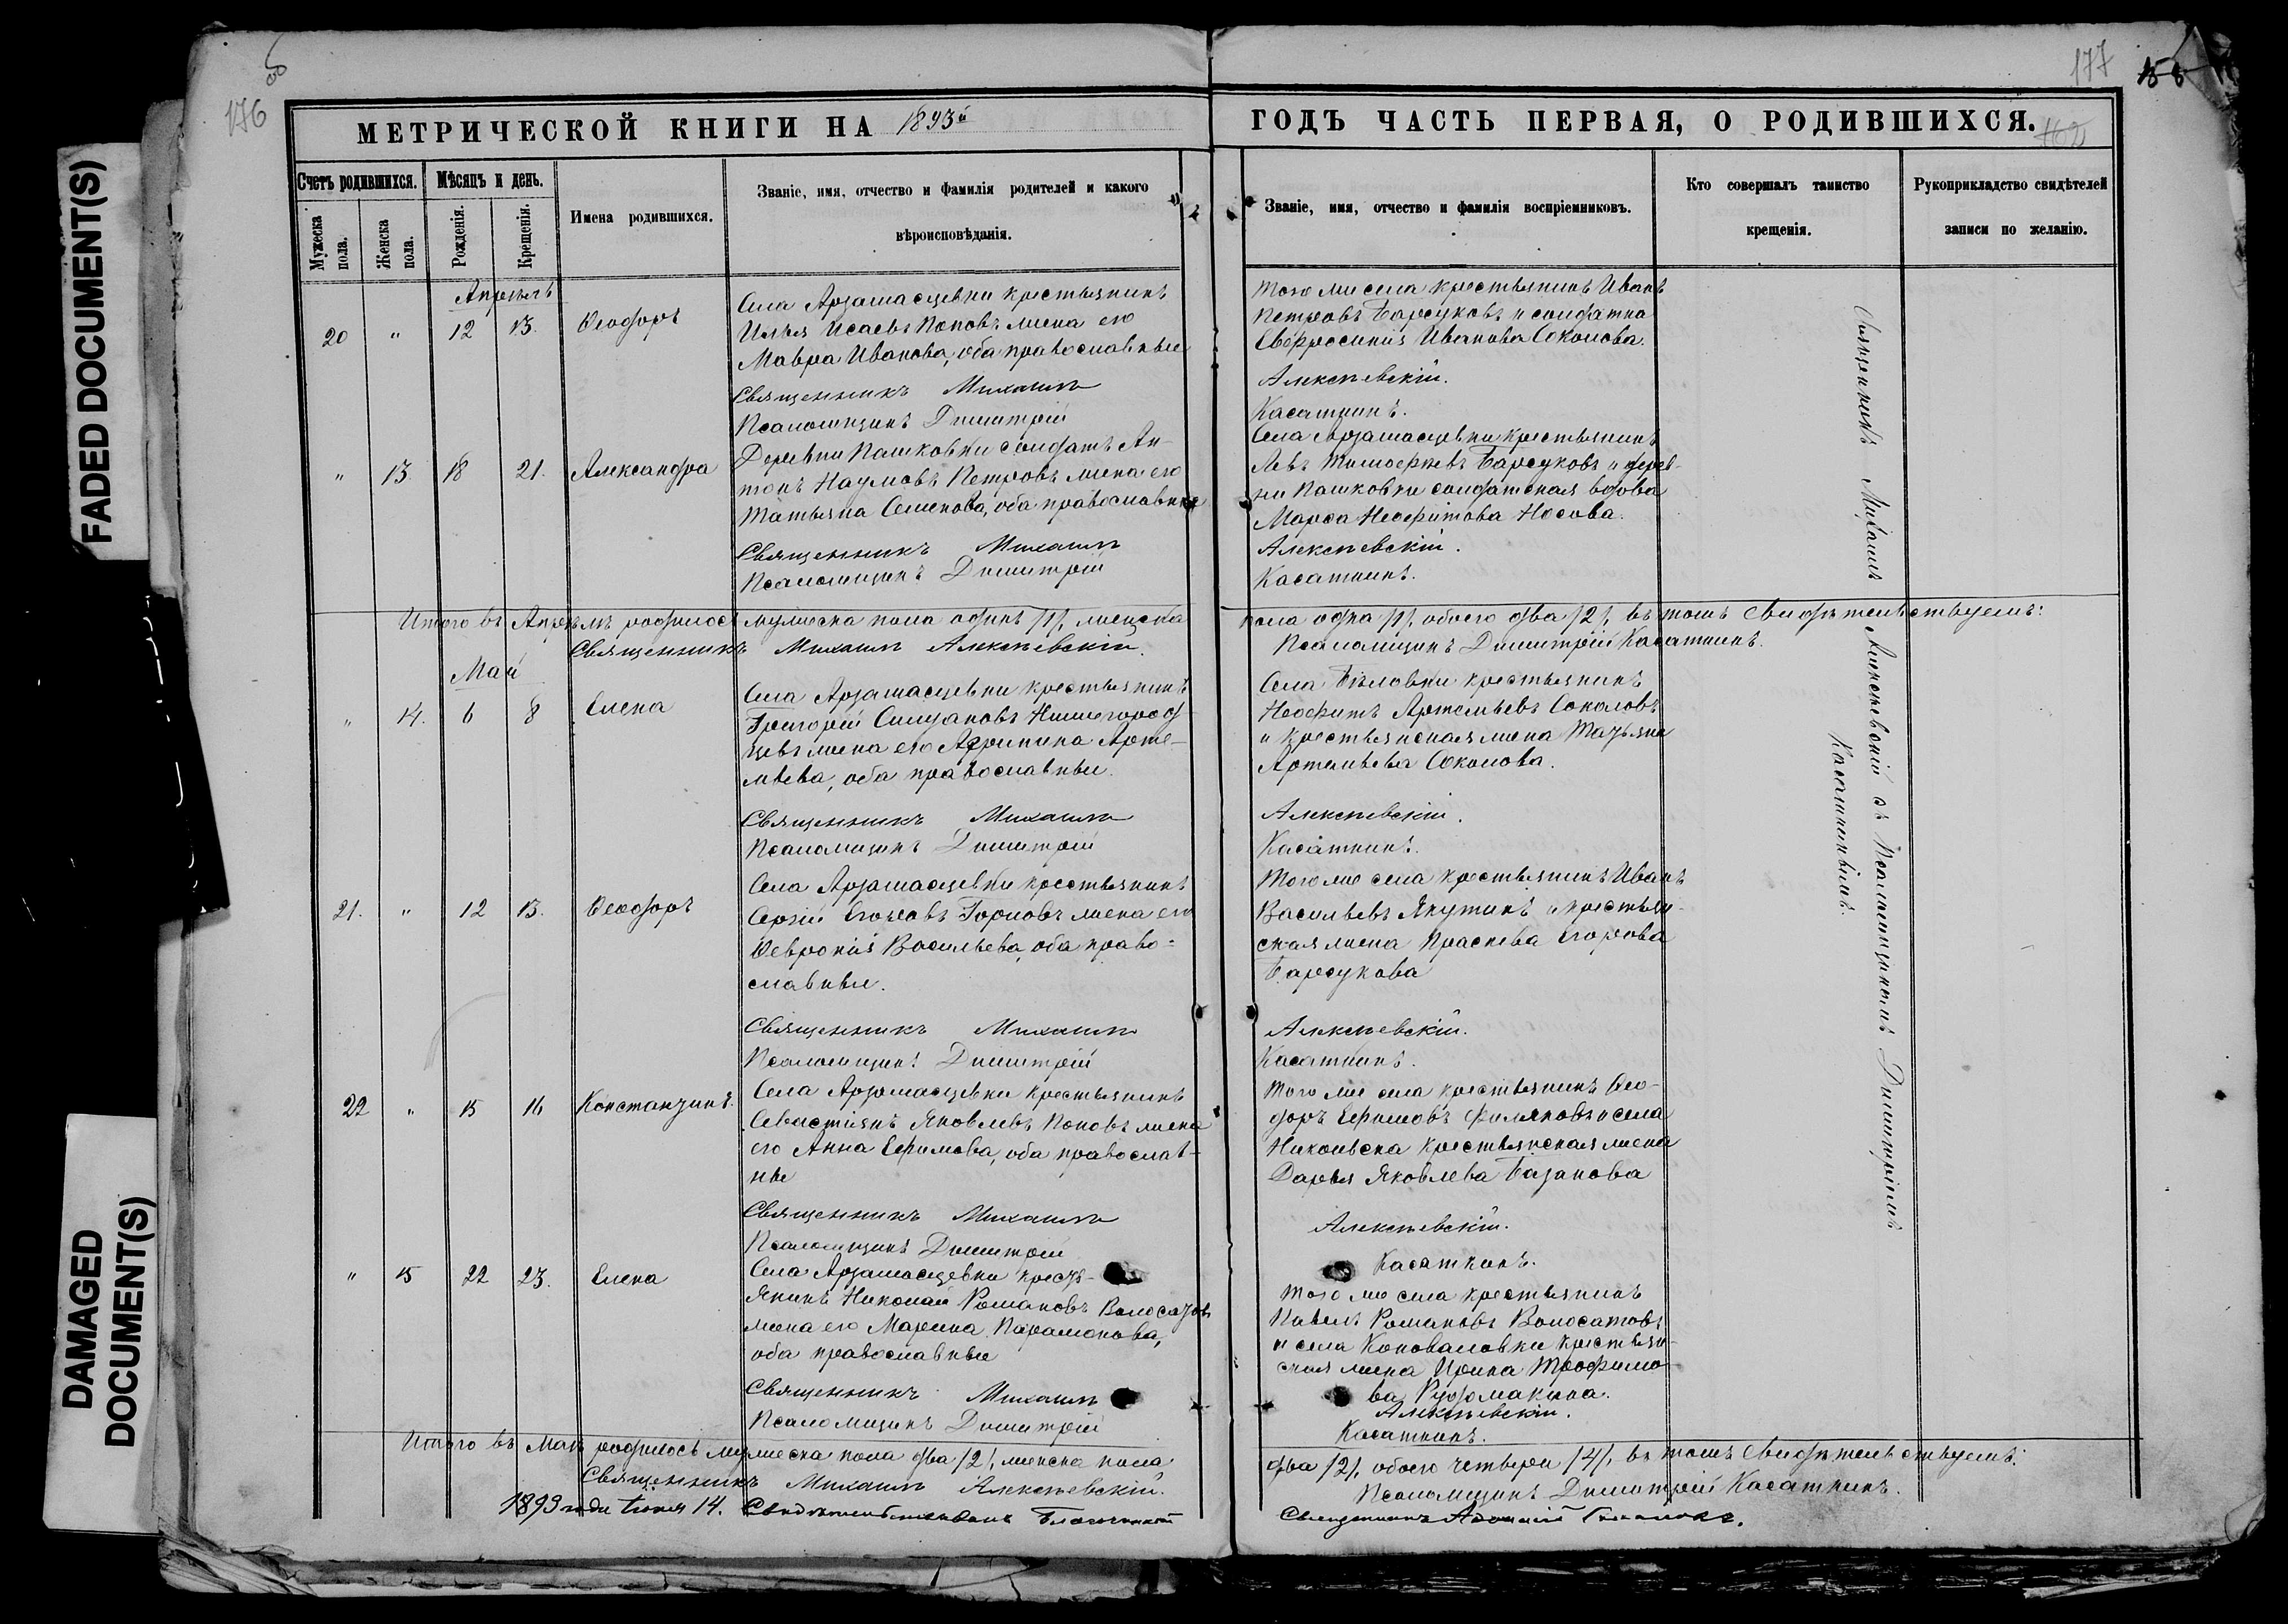 FADED DOCUMENT(S)
DAMAGED
DOCUMENT(S)
176
177
МЕТРИЧЕСКОЙ КНИГИ НА 1893й
ГОДЪ ЧАСТЬ ПЕРВАЯ, О РОДИВШИХСЯ.
162
Счетъ родившихся.
Мужеска пола.
Женска пола.
Мѣсяцъ и день.
Рожденія.
Крещенія.
Имена родившихся.
Званіе, имя, отчество и фамилія родителей и какого
вѣроисповѣданія.
Званіе, имя, отчество и фамилія воспріемниковъ.
Кто совершалъ таинство
крещенія.
Рукоприкладство свидѣтелей
записи по желанію.
Апрѣль
20 " 12 13. Ѳеодоръ
Села Арзамасцевки крестьянинъ
Илья Исаевъ Поповъ жена его
Мавра Иванова, оба православные
Священникъ Михаилъ
Псаломщикъ Димитрій
Того же села крестьянинъ Иванъ
Петровъ Барсуковъ и солдатка
Евфросинія Иванова Соколова.
Алексѣевскій.
Касаткинъ.
" 13 18 21. Александра
Деревни Пашковки солдатъ Ан-
тонъ Наумовъ Петровъ жена его
Татьяна Семенова, оба православные
Священникъ Михаилъ
Псаломщикъ Димитрій
Села Арзамасцевки крестьянинъ
Левъ Тимоѳеевъ Барсуковъ и дерев-
ни Пашковки солдатская вдова
Марѳа Неофитова Носова.
Алексѣевскій.
Касаткинъ.
Итого въ Апрѣлѣ родилось мужеска пола одинъ /1/, женска
пола одна /1/, обоего два /2/, въ томъ свидѣтельствуемъ:
Священникъ Михаилъ Алексѣевскій.
Псаломщикъ Димитрій Касаткинъ.
Май
" 14. 6 8 Елена
Села Арзамасцевки крестьянинъ
Григорій Силуановъ Нижегород-
цевъ жена его Агрипина Арте-
мьева, оба православные.
Священникъ Михаилъ
Псаломщикъ Димитрій
Села Бѣловки крестьянинъ
Неофитъ Артемьевъ Соколовъ
и крестьянская жена Татьяна
Артемьева Соколова.
Алексѣевскій.
Касаткинъ.
21. " 12 13. Ѳеодоръ
Села Арзамасцевки крестьянинъ
Сергій Егоровъ Горловъ жена его
Ѳевронія Васильева, оба право-
славные.
Священникъ Михаилъ
Псаломщикъ Димитрій
Того же села крестьянинъ Иванъ
Васильевъ Якутинъ и крестьян-
ская жена Праскева Егорова
Барсукова
Алексѣевскій.
Касаткинъ.
22 " 15 16 Константинъ.
Села Арзамасцевки крестьянинъ
Севастіянъ Яковлевъ Поповъ жена
его Анна Ефимова, оба православ-
ные
Священникъ Михаилъ
Псаломщикъ Димитрій
Того же села крестьянинъ Ѳео-
доръ Ефимовъ Филяковъ и села
Никольска крестьянская жена
Дарья Яковлева Базанова
Алексѣевскій.
Касаткинъ.
" 15 22 23. Елена
Села Арзамасцевки крестъ-
янинъ Николай Романовъ Волосатовъ
жена его Марина Парамонова,
оба православные
Священникъ Михаилъ
Псаломщикъ Димитрій
Того же села крестьянинъ
Павелъ Романовъ Волосатовъ
и села Коноваловки крестьян-
ская жена Ирина Трофимо-
ва Рудомакина.
Алексѣевскій.
Касаткинъ.
Священникъ Михаилъ
Алексѣевскій съ Псаломщикомъ Димитріемъ
Касаткинымъ.
Итого въ Маѣ родилось мужеска пола два /2/, женска пола
два /2/, обоего четверо /4/, въ томъ свидѣтельствуемъ:
Священникъ Михаилъ Алексѣевскій.
Псаломщикъ Димитрій Касаткинъ.
1893 года Іюня 14. Свидѣтельствовалъ Благочинный
Священникъ